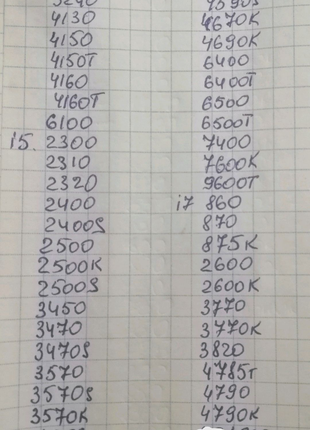 4130
4150
4150T
4160
4160T
6100
i5. 2300
2310
2320
2400
2400S
2500
2500K
2500S
3450
3470
3470S
3570
3570S
3570K
4670K
4690K
6400
6400T
6500
6500T
7400
7600K
9600T
i7 860
870
875K
2600
2600K
3770
3770K
3820
4785T
4790
4790K